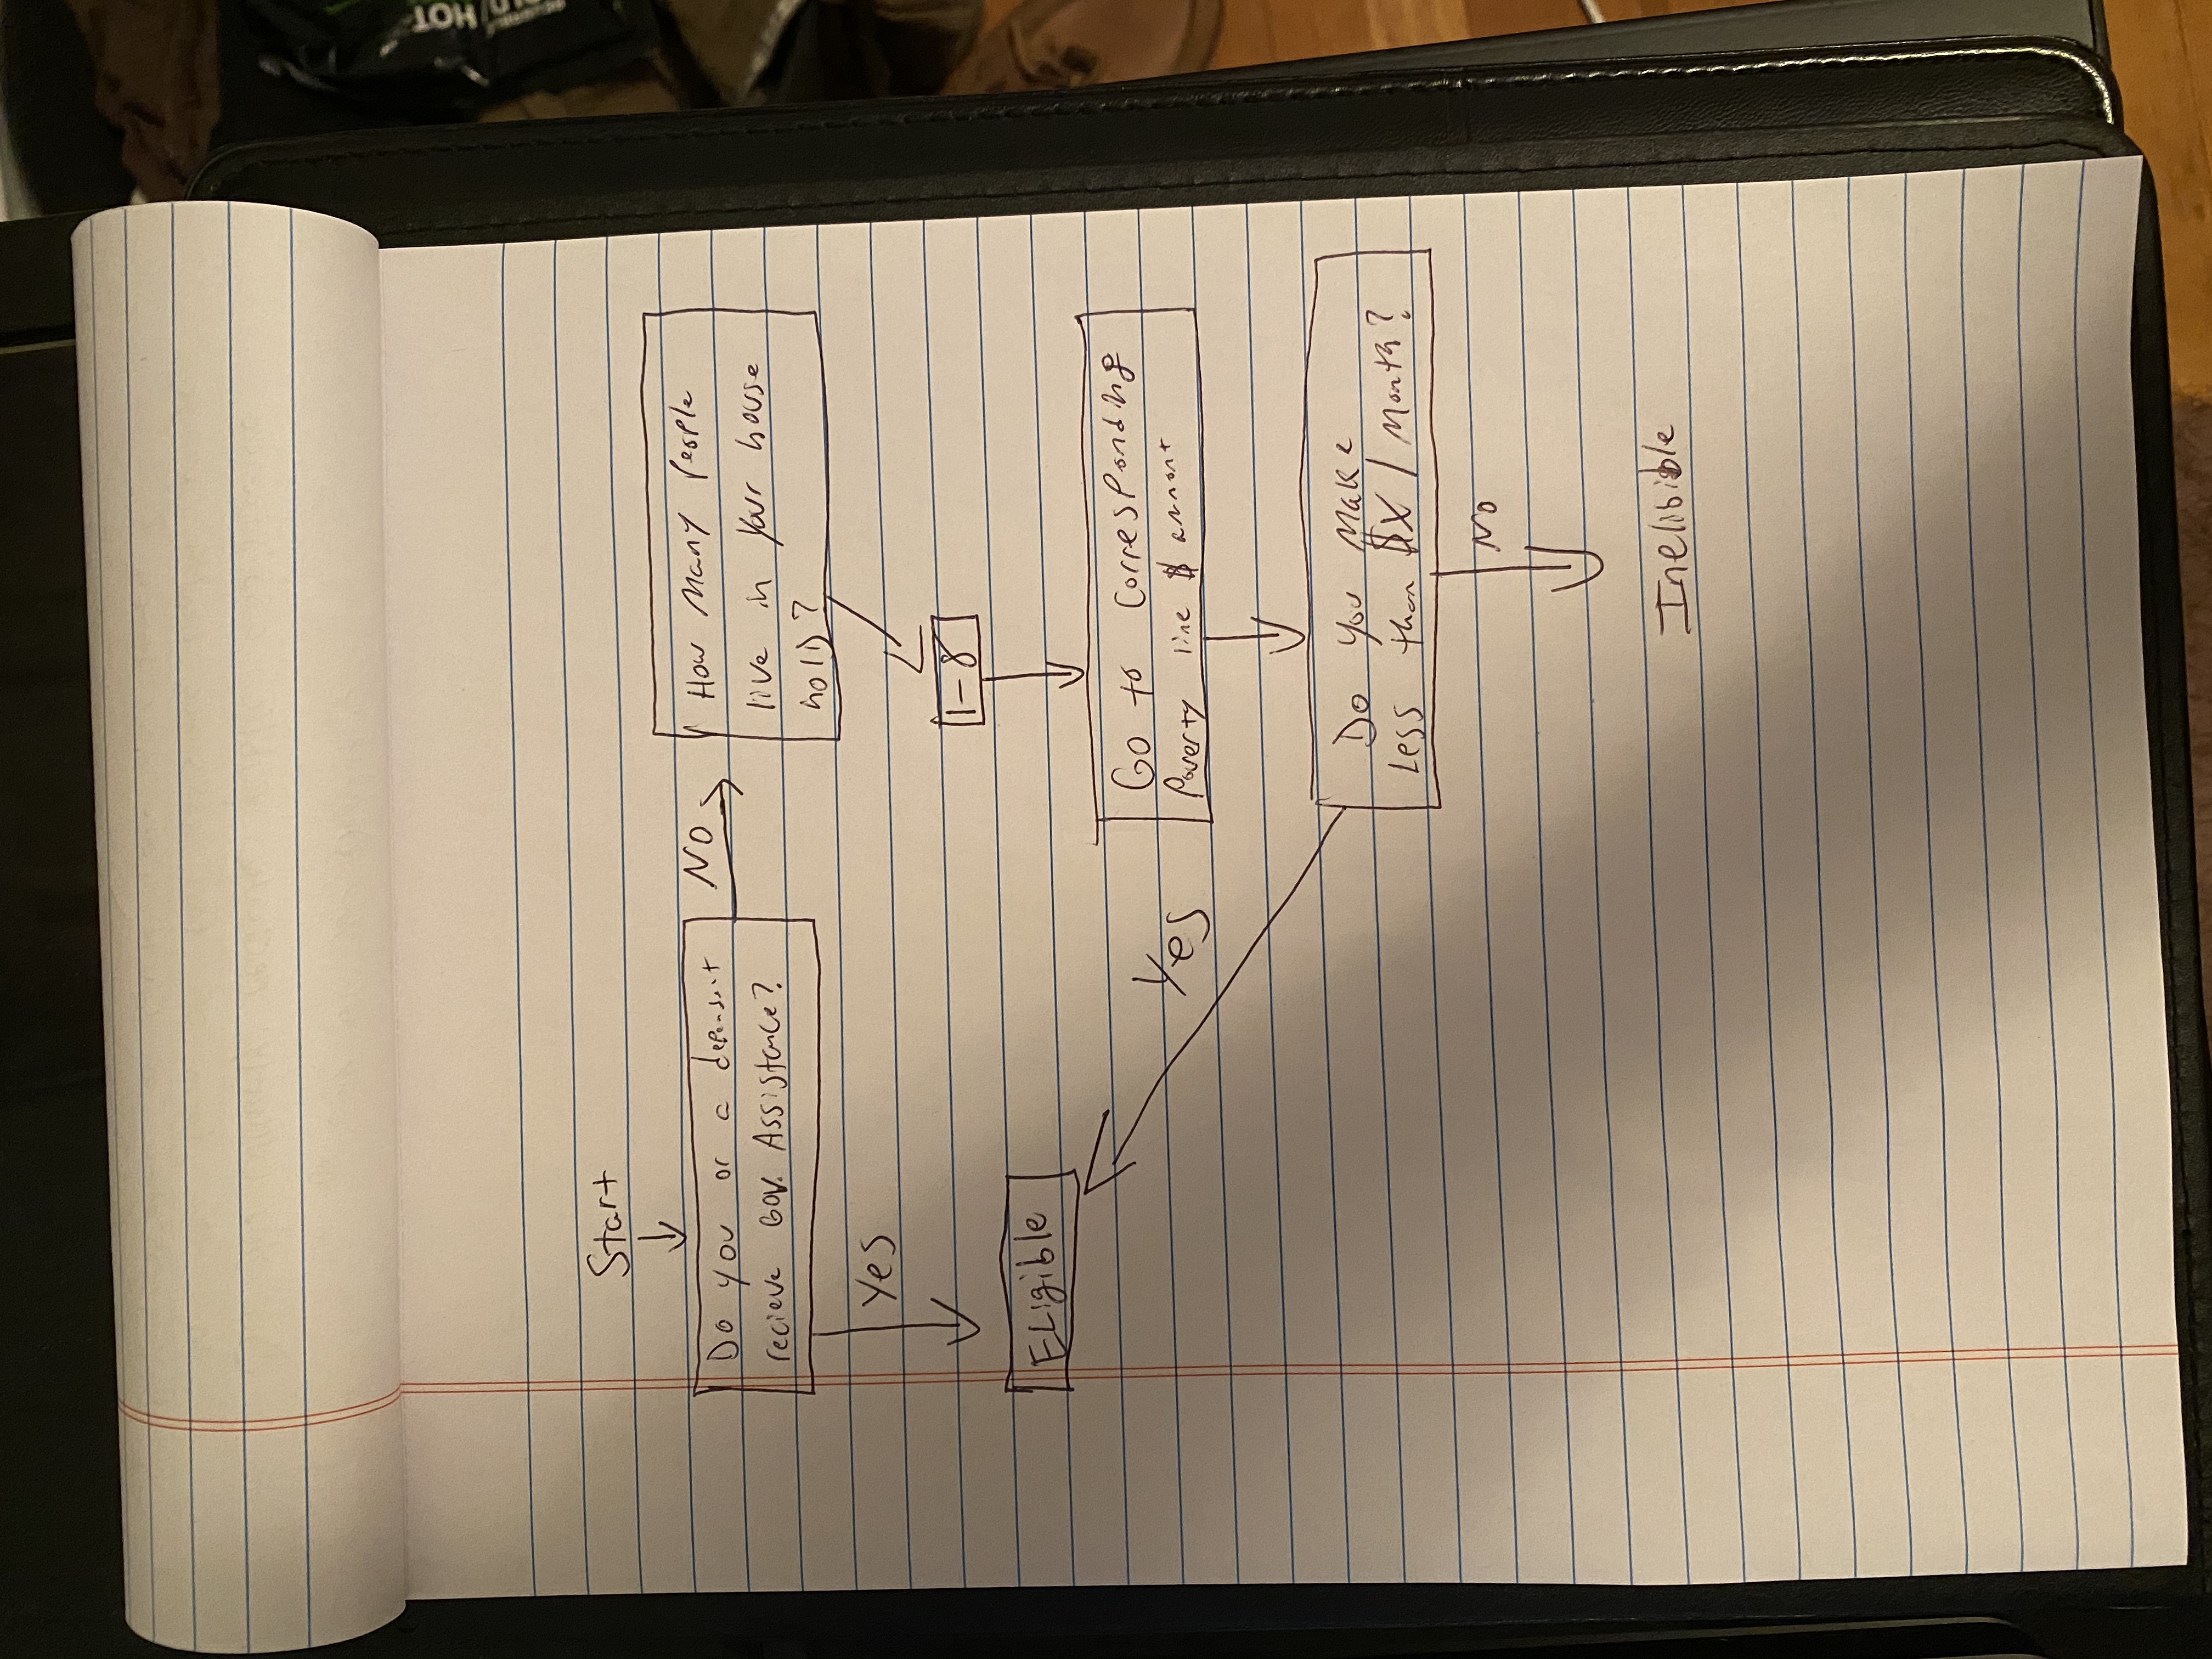 Start
Do you or a dependent
recieve Gov. Assistance?
NO
How Many people
live in your house
hold?
Yes
1-8
ELigible
Go to Corresponding
Poverty line $ amount
Yes
Do you Make
Less than $X / Month?
No
Inelibible
HOT